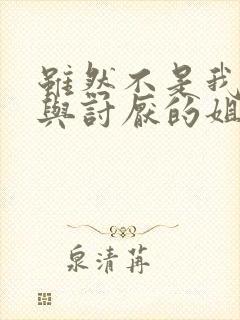 雖然不是我
與討厭的姐
泉清苒